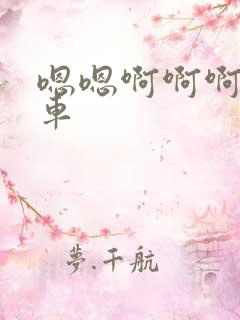 嗯嗯啊啊啊
車
夢.千航